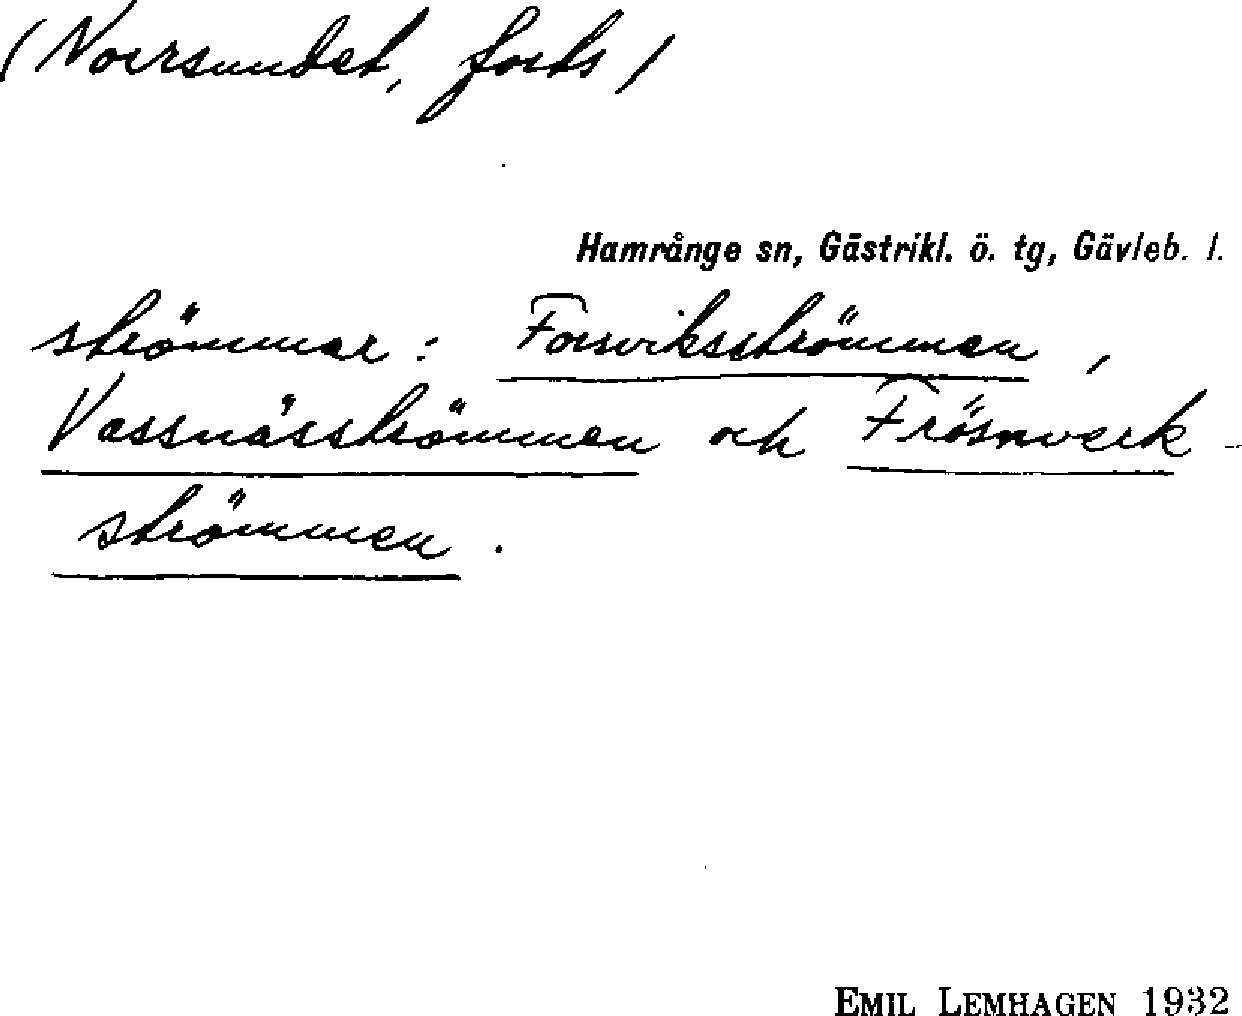 (Norrsundet, forts)
Hamrånge sn, Gästrikl. ö. tg, Gävleb. l.
strömmar: Forsviksströmmen,
Vassnäsströmmen och Frösnverk-
strömmen.
EMIL LEMHAGEN 1932